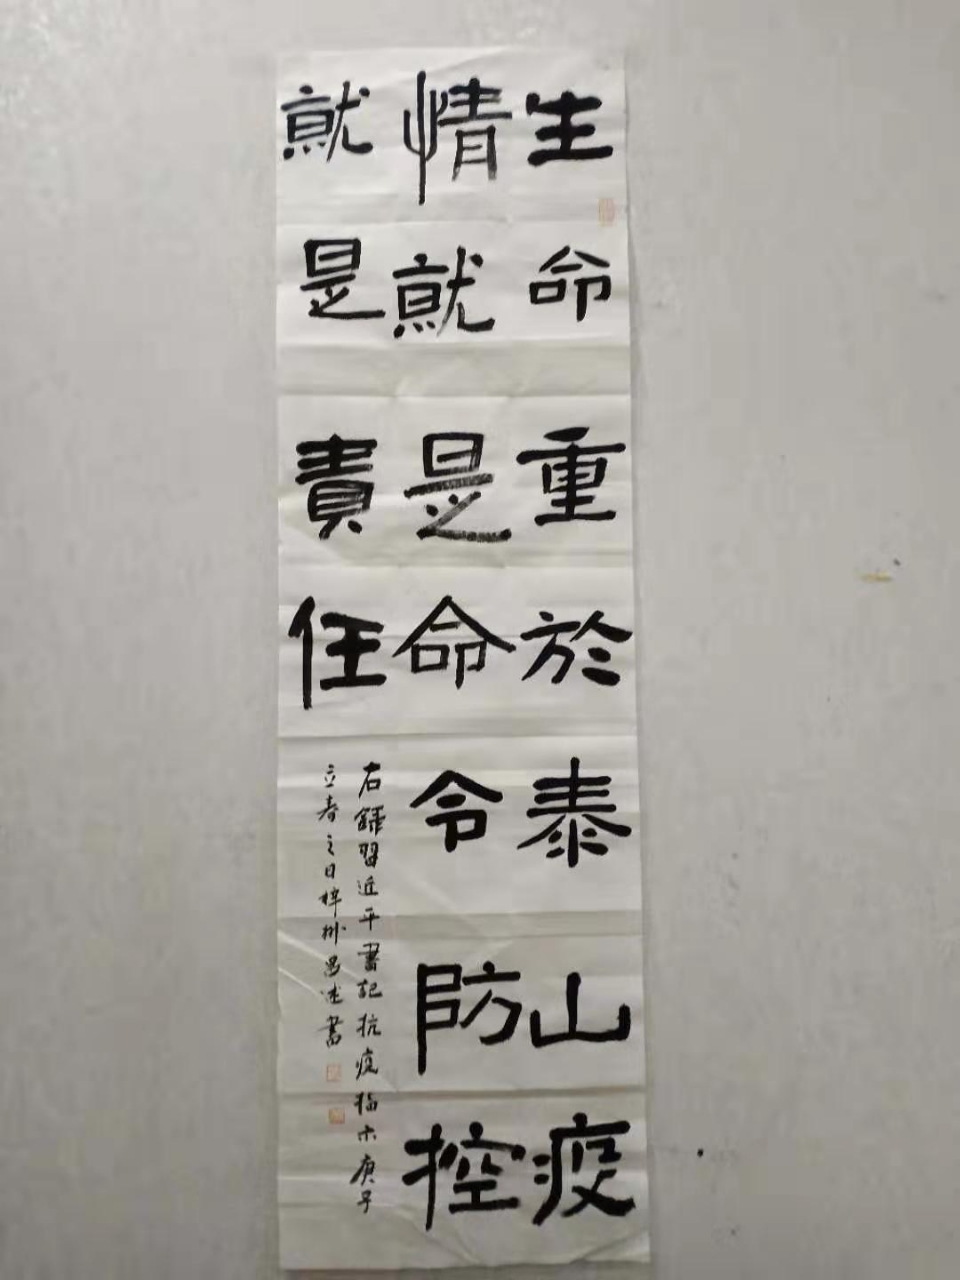 生命重於泰山疫
情就是命令防控
就是責任
右錄習近平書記抗疫指示庚子
立春之日梓州昌述書